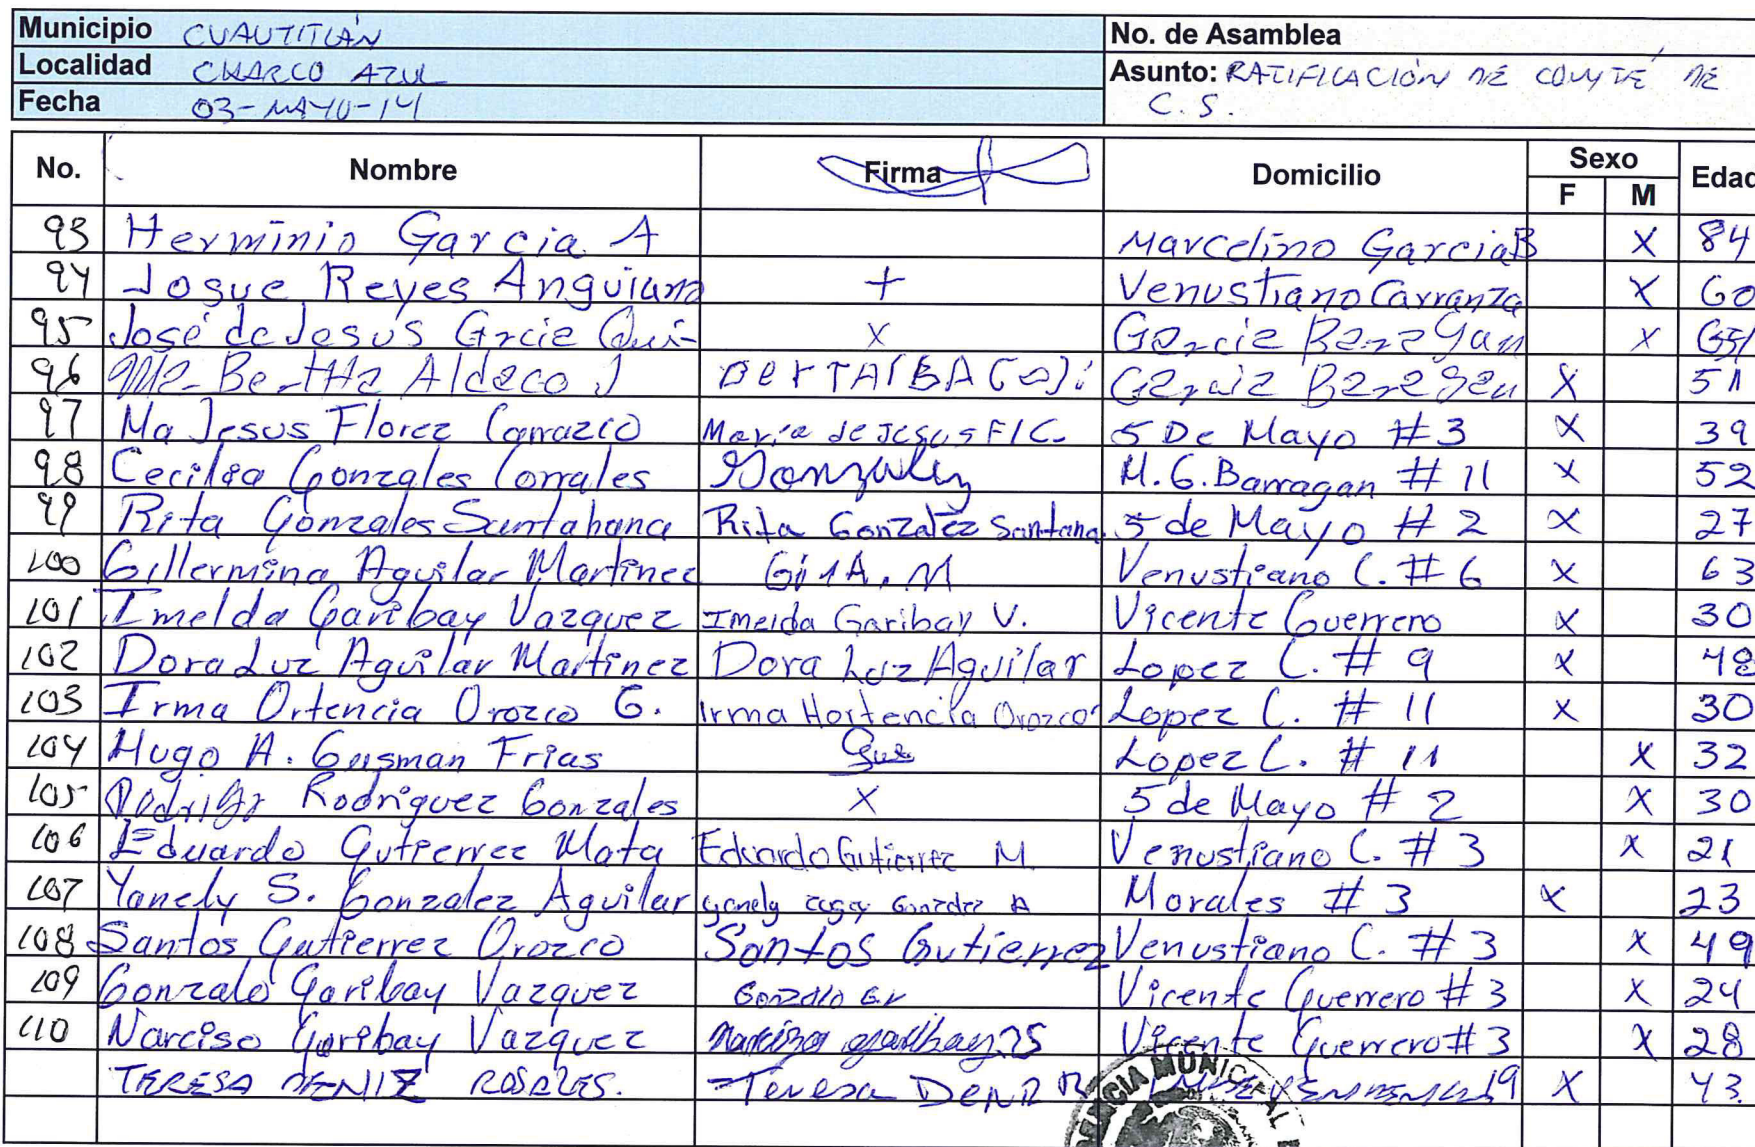 Municipio CUAUTITLÁN
No. de Asamblea
Localidad CHARCO AZUL
Asunto: RATIFICACIÓN DE COMITÉ DE
Fecha 03-MAYO-14
C. S.
No. Nombre Firma Domicilio Sexo Edad
F M
93 Herminio Garcia A Marcelino Garcia B X 84
94 Josue Reyes Anguiano + Venustiano Carranza X 60
95 José de Jesús Grcia Qui- X Garcia Baragan X 65
96 Ma- Bertha Aldaco J Garcia Baragan X 51
97 Ma Jesus Florez Corrazco Maria de Jesus F/C. 5 De Mayo #3 X 39
98 Cecilia Gonzales Corrales Gonzalez M. G. Barragan #11 X 52
99 Rita Gonzales Santahana Rita Gonzalez Santana. 5 de Mayo #2 X 27
100 Gillermina Aguilar Martinez Gi1A. M Venustiano C. #6 X 63
101 Imelda Garibay Vazquez Imelda Garibay V. Vicente Guerrero X 30
102 Dora Luz Aguilar Martinez Dora Luz Aguilar Lopez C. #9 X 48
103 Irma Ortencia Orozco G. Irma Hortencia Orozco Lopez C. #11 X 30
104 Hugo A. Gusman Frias Gus Lopez C. #11 X 32
105 Rodrigo Rodriguez Gonzales X 5 de Mayo #2 X 30
106 Eduardo Gutierrez Mata Eduardo Gutierrez M Venustiano C. #3 X 21
107 Yanely S. Gonzalez Aguilar yanely Gonzalez A Morales #3 X 23
108 Santos Gutierrez Orozco Santos Gutierrez Venustiano C. #3 X 49
109 Gonzalo Garibay Vazquez Gonzalo G.V Vicente Guerrero #3 X 24
110 Narciso Garibay Vazquez Narciso garibay Vicente Guerrero #3 X 28
TERESA DENIZ ROSALES. Teresa DENIZ R 19 X 43.